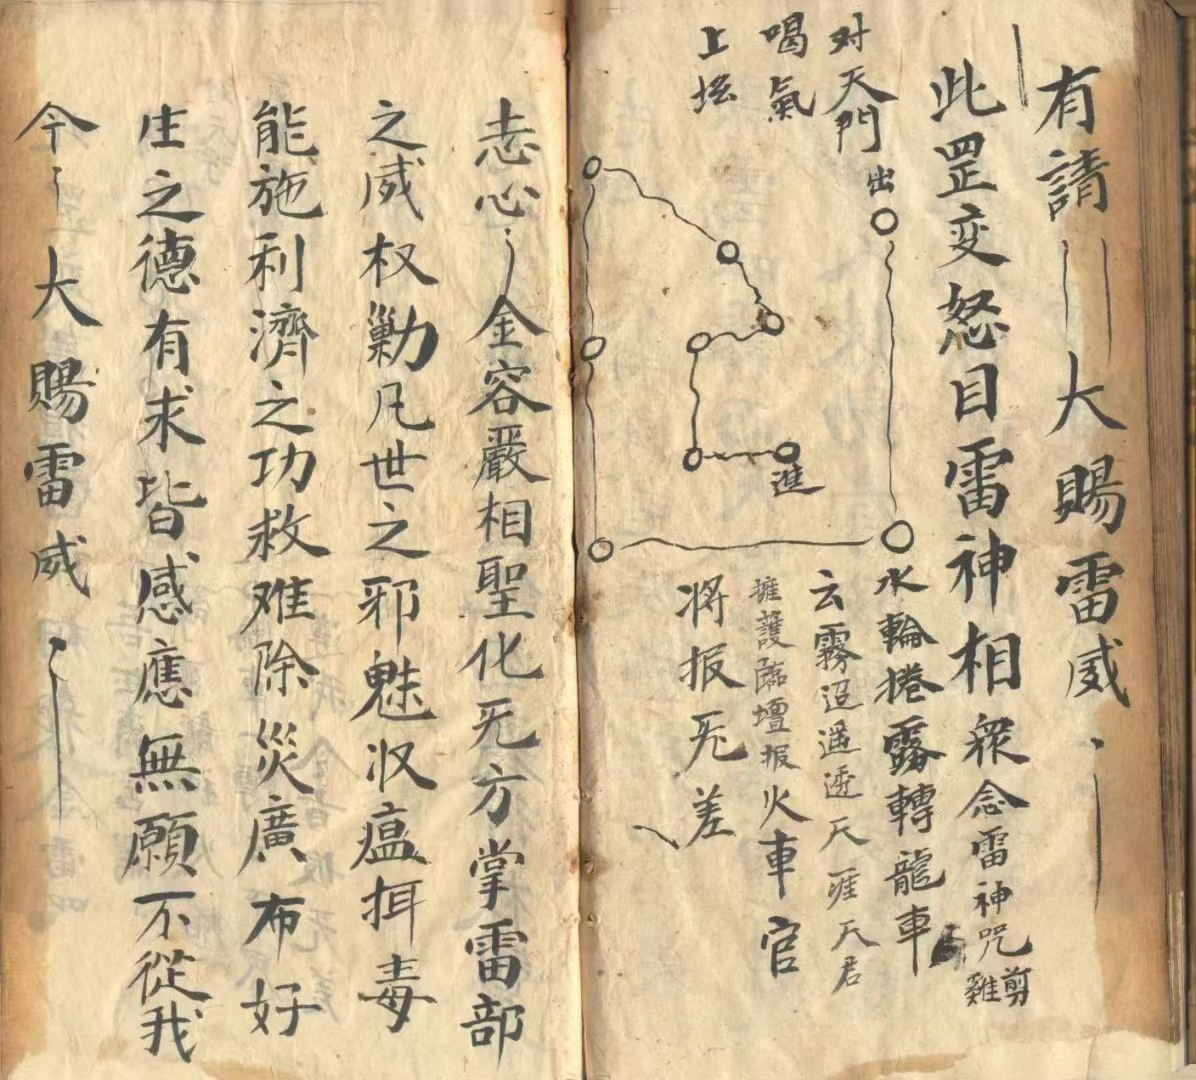 有請 大賜雷威
此罡变怒目雷神相衆念雷神咒剪雞
对天門
喝氣
上坛
出
進
水輪捲霧轉龍車
云霧迢遥透天涯天君
擁護臨壇报火車官
将报旡差
志心 金容嚴相聖化旡方掌雷部
之威权勦凡世之邪魅收瘟拜毒
能施利濟之功救难除災廣布好
生之德有求皆感應無願不從我
今 大賜雷威